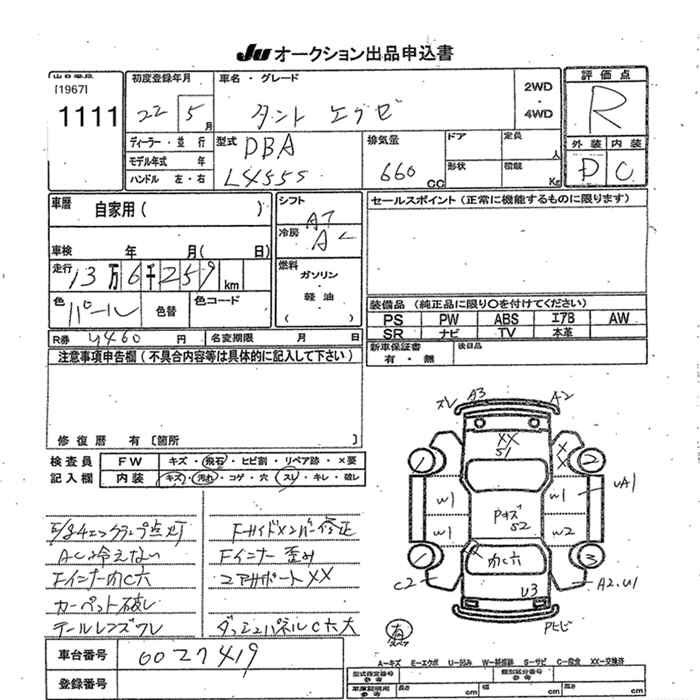 JU オークション出品申込書
[1967]
1111
初度登録年月
22 5 月
車名・グレード
タント エグゼ
2WD
・
4WD
評価点
R
外装 内装
D C
ディーラー・並行
モデル年式 年
ハンドル 左・右
型式
DBA
L455S
排気量
660 CC
ドア
定員
人
形状
積載
Kg
車歴
自家用( )
車検 年 月( 日)
走行
13万6千259 km
色
パール
色替
色コード
シフト
AT
冷房
AC
燃料
ガソリン
・
軽油
( )
セールスポイント(正常に機能するものに限ります)
装備品(純正品に限り○を付けてください)
PS PW ABS エアB AW
SR ナビ TV 本革
R券 4460 円
名変期限 月 日
新車保証書
有・無
後日品
注意事項申告欄(不具合内容等は具体的に記入して下さい)
修復歴 有[箇所 ]
検査員
記入欄
FW キズ・飛石・ヒビ割・リペア跡・×要
内装 キズ・汚れ・コゲ・穴・スレ・キレ・破レ
ACル冷えない
FインナーカC穴
カーペット破レ
テールレンズワレ
Fサイドメンバー修正
Fインナー歪み
コアサポートXX
ダッシュパネルC穴大
スレ A3 A2
XX
51
XX
1 2
W1 W1 UA1
Pキズ
52
W1 W2
1 3
カC穴
C2 U3 A2.U1
Pヒビ
車台番号 0027419
登録番号
A−キズ E−エクボ U−凹み W−補修跡 S−サビ C−腐食 XX−交換済
型式指定番号
参考
類別区分番号
参考
車庫証明用
参考
長さ cm 幅 cm 高さ cm